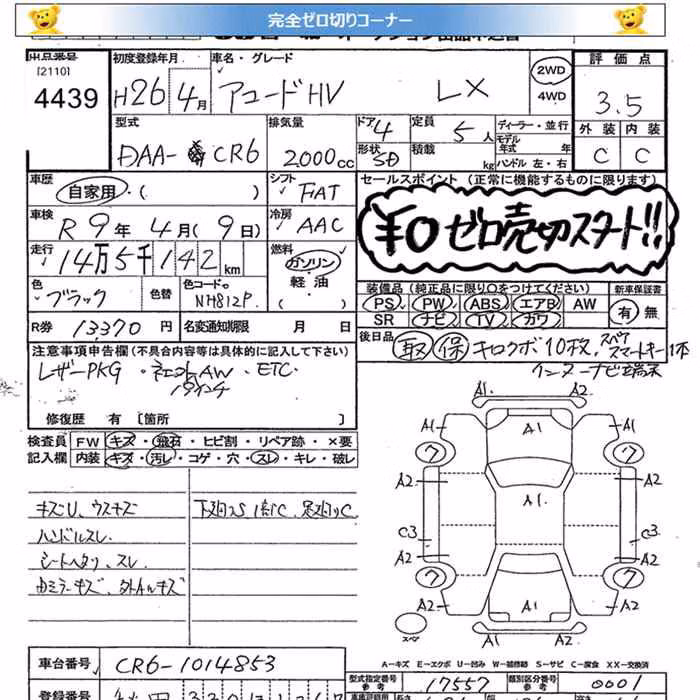 完全ゼロ切りコーナー
出品番号 初度登録年月 車名・グレード 2WD 4WD 評価点
[2110]
4439 H26年 4月 アコードHV LX 3.5
外装 内装
C C
型式 排気量 ドア 4 定員 5人 ディーラー・並行
DAA- CR6 2000cc 形状 SD 積載 kg モデル年式 年
ハンドル 左・右
車歴 自家用・( ) シフト FIAT セールスポイント(正常に機能するものに限ります)
車検 R 9年 4月(9日) 冷房 AAC ¥0 ゼロ売切スタート!!
走行 14万5千142km 燃料 ガソリン・軽油( )
色 ブラック 色替 色コードNo NH812P 装備品(純正品に限り○をつけてください) 新車保証書
PS PW ABS エアB AW 有・無
SR ナビ TV カワ
R券 13370円 名変通知期限 月 日 後日品 取 保 キロクボ10枚、スペアスマートキー1本
インターナビ端末
注意事項申告欄(不具合内容等は具体的に記入して下さい)
レザーPKG ・社外AW・ETC
19インチ
修復歴 有[箇所 ]
検査員記入欄 FW キズ・飛石・ヒビ割・リペア跡・×要
内装 キズ・汚レ・コゲ・穴・スレ・キレ・破レ
キズU、ウスキズ 下廻りS 1部C、足廻りC
ハンドルスレ
シートヘタリ、スレ
ドアミラーキズ、外AWキズ
A1 A2
A1 A1 A1
7 7
A2 A2
A1
C3 C3
A2 A2
7 7
A2 A1 A2
A2
スペ
A-キズ E-エクボ U-凹み W-補修跡 S-サビ C-腐食 XX-交換済
車台番号 CR6-1014853 型式指定番号 参考 17557 類別区分番号 参考 0001
登録番号